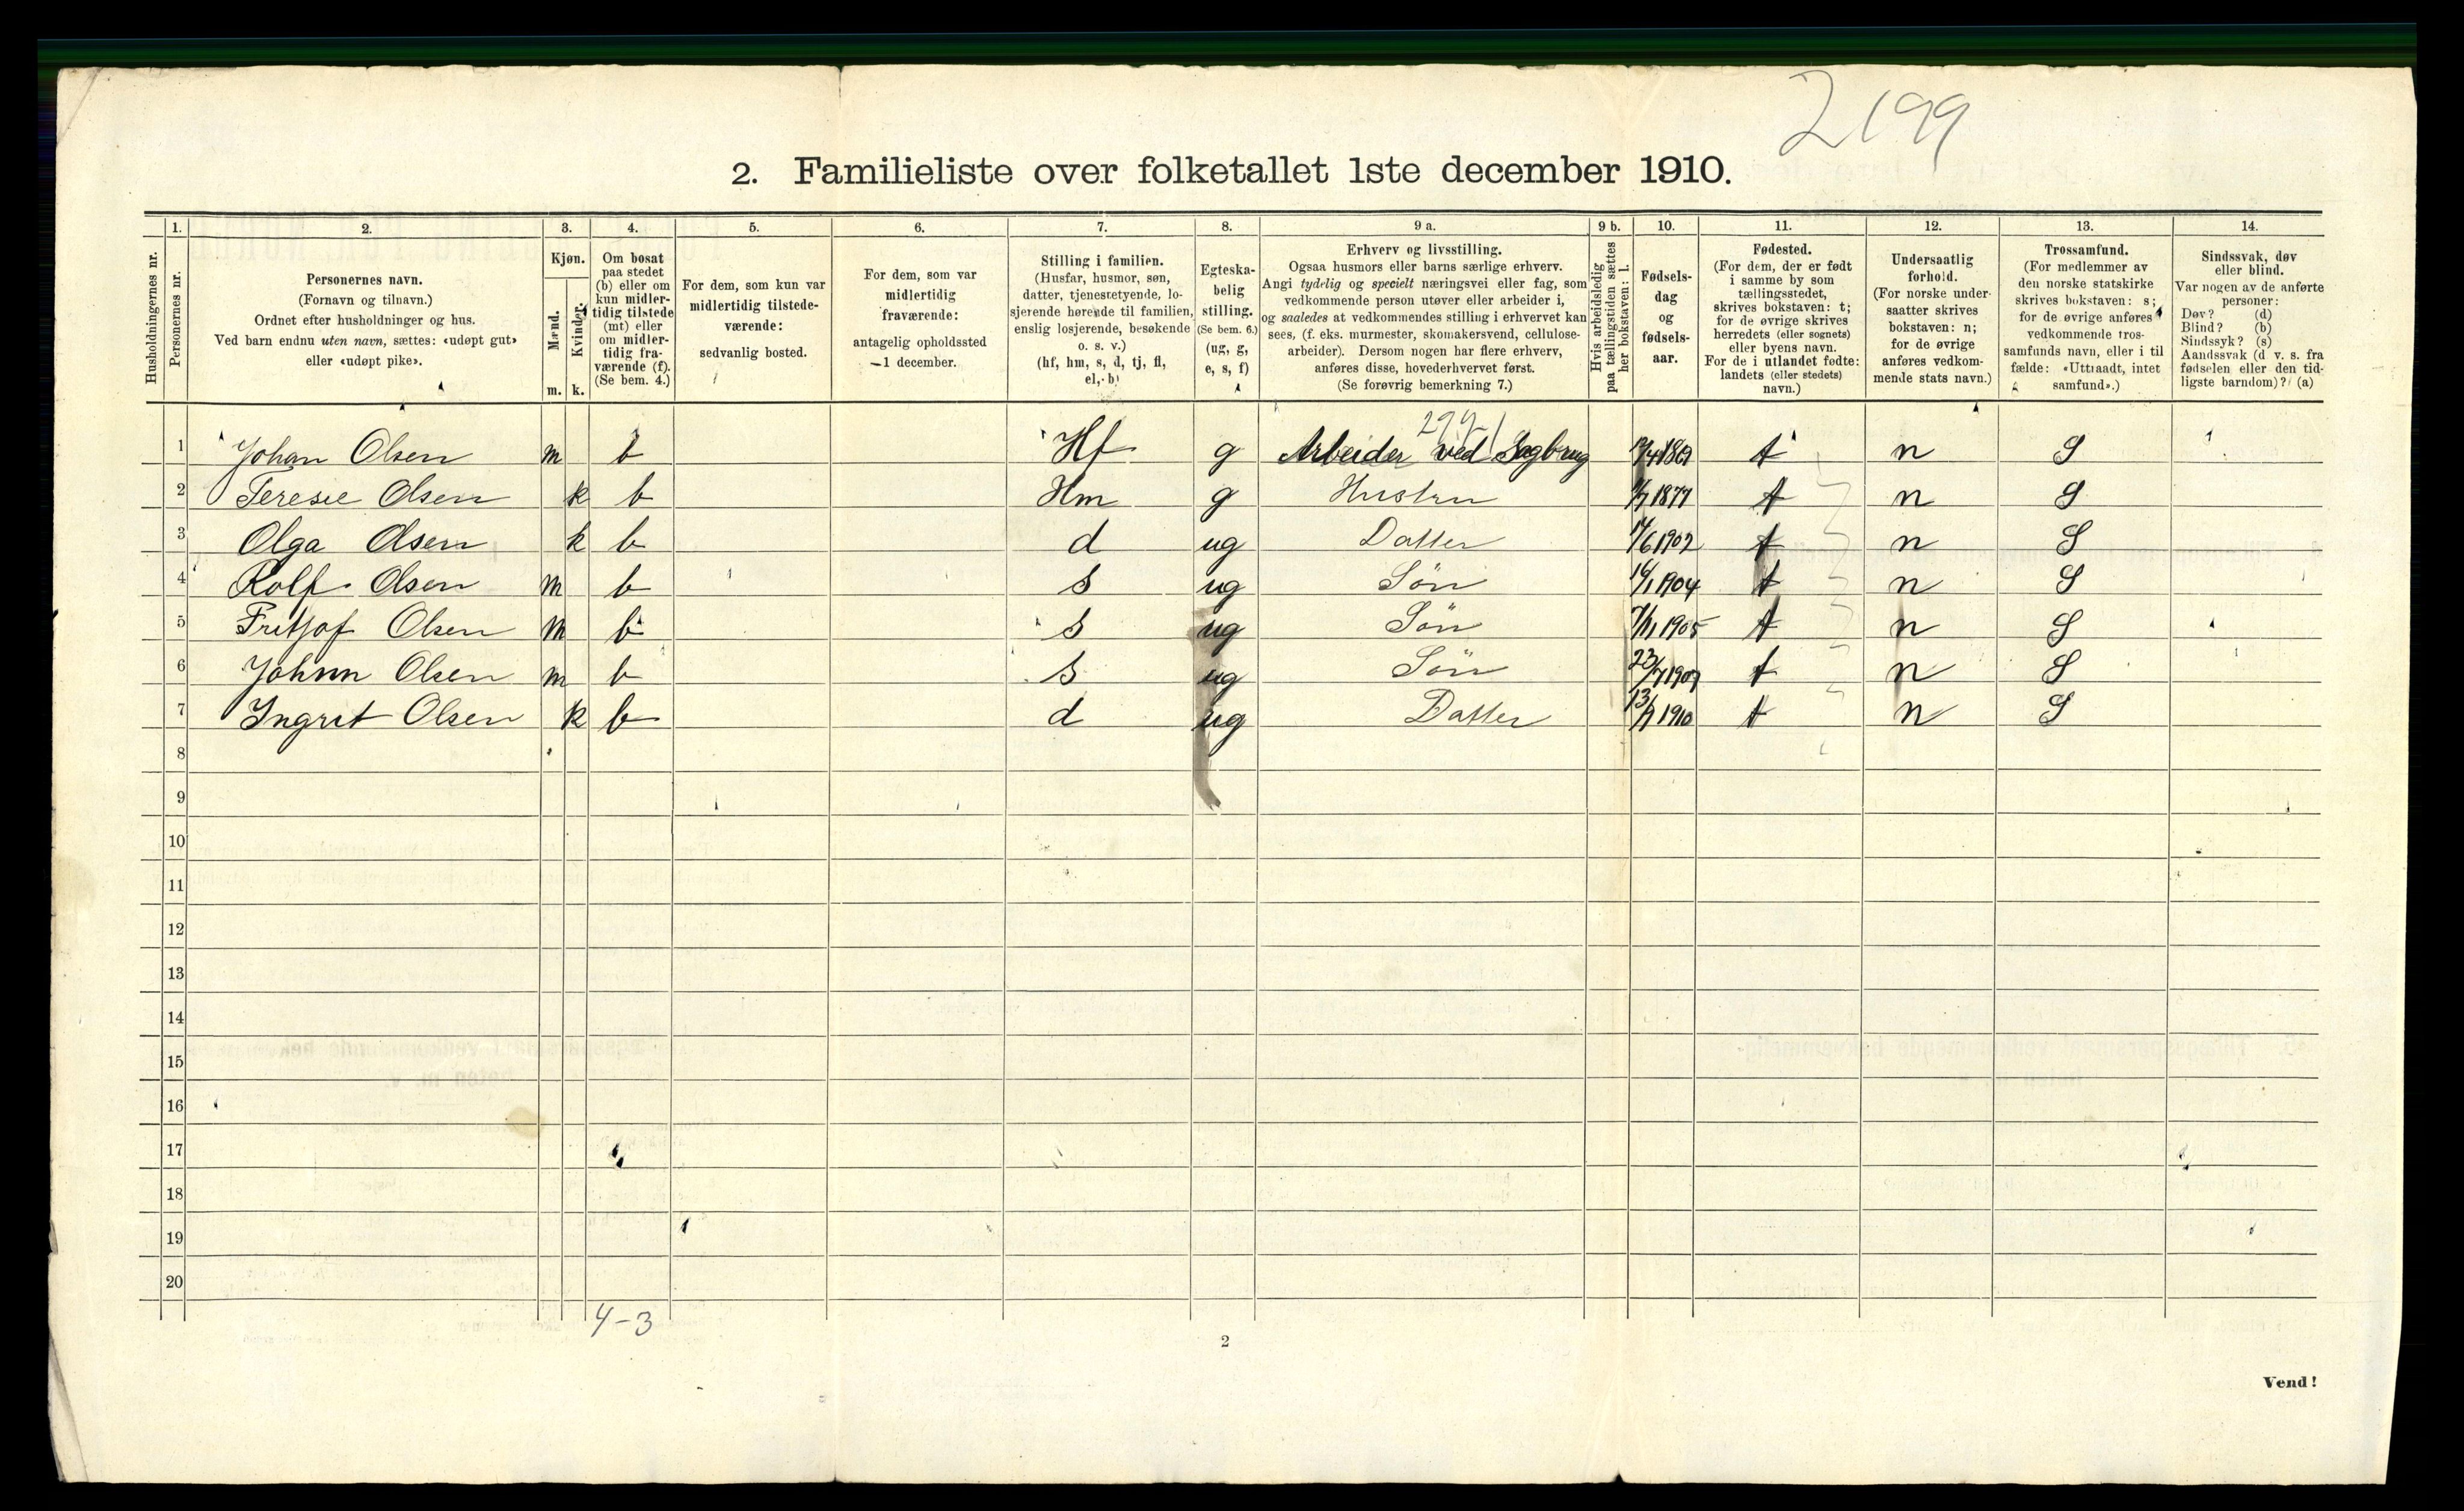 2199
2. Familieliste over folketallet 1ste december 1910.
Husholdningernes nr.
1. Personernes nr.
2. Personernes navn.
(Fornavn og tilnavn.)
Ordnet efter husholdninger og hus.
Ved barn endnu uten navn, sættes: «udøpt gut»
eller «udøpt pike».
3. Kjøn.
Mænd. m.
Kvinder. k.
4. Om bosat
paa stedet
(b) eller om
kun midler-
tidig tilstede
(mt) eller
om midler-
tidig fra-
værende (f).
(Se bem. 4.)
5. For dem, som kun var
midlertidig tilstede-
værende:
sedvanlig bosted.
6. For dem, som var
midlertidig
fraværende:
antagelig opholdssted
1 december.
7. Stilling i familien.
(Husfar, husmor, søn,
datter, tjenestetyende, lo-
sjerende hørende til familien,
enslig losjerende, besøkende
o. s. v.)
(hf, hm, s, d, tj, fl,
el, b)
8. Egteska-
belig
stilling.
(Se bem. 6.)
(ug, g,
e, s, f)
9 a. Erhverv og livsstilling.
Ogsaa husmors eller barns særlige erhverv.
Angi tydelig og specielt næringsvei eller fag, som
vedkommende person utøver eller arbeider i,
og saaledes at vedkommendes stilling i erhvervet kan
sees, (f. eks. murmester, skomakersvend, cellulose-
arbeider). Dersom nogen har flere erhverv,
anføres disse, hovederhvervet først.
(Se forøvrig bemerkning 7.)
9 b. Hvis arbeidsledig
paa tællingstiden sættes
her bokstaven: l.
10. Fødsels-
dag
og
fødsels-
aar.
11. Fødested.
(For dem, der er født
i samme by som
tællingsstedet,
skrives bokstaven: t;
for de øvrige skrives
herredets (eller sognets)
eller byens navn.
For de i utlandet fødte:
landets (eller stedets)
navn.)
12. Undersaatlig
forhold.
(For norske under-
saatter skrives
bokstaven: n;
for de øvrige
anføres vedkom-
mende stats navn.)
13. Trossamfund.
(For medlemmer av
den norske statskirke
skrives bokstaven: s;
for de øvrige anføres
vedkommende tros-
samfunds navn, eller i til
fælde: «Uttraadt, intet
samfund».)
14. Sindssvak, døv
eller blind.
Var nogen av de anførte
personer:
Døv? (d)
Blind? (b)
Sindssyk? (s)
Aandssvak (d v. s. fra
fødselen eller den tid-
ligste barndom)? (a)
1 Johan Olsen m b Hf g Arbeider ved Sagbrug t n S
2 Teresie Olsen k b Hm g Hustru 1877 t n S
3 Olga Olsen k b d ug Datter 14/6 1902 t n S
4 Rolf Olsen m b s ug Sön 16/1 1904 t n S
5 Fritjof Olsen m b s ug Sön 7/11 1905 t n S
6 Johan Olsen m b s ug Sön t n S
7 Ingrit Olsen k b d ug Datter 1910 t n S
8
9
10
11
12
13
14
15
16
17
18
19
20
4-3
2
Vend!